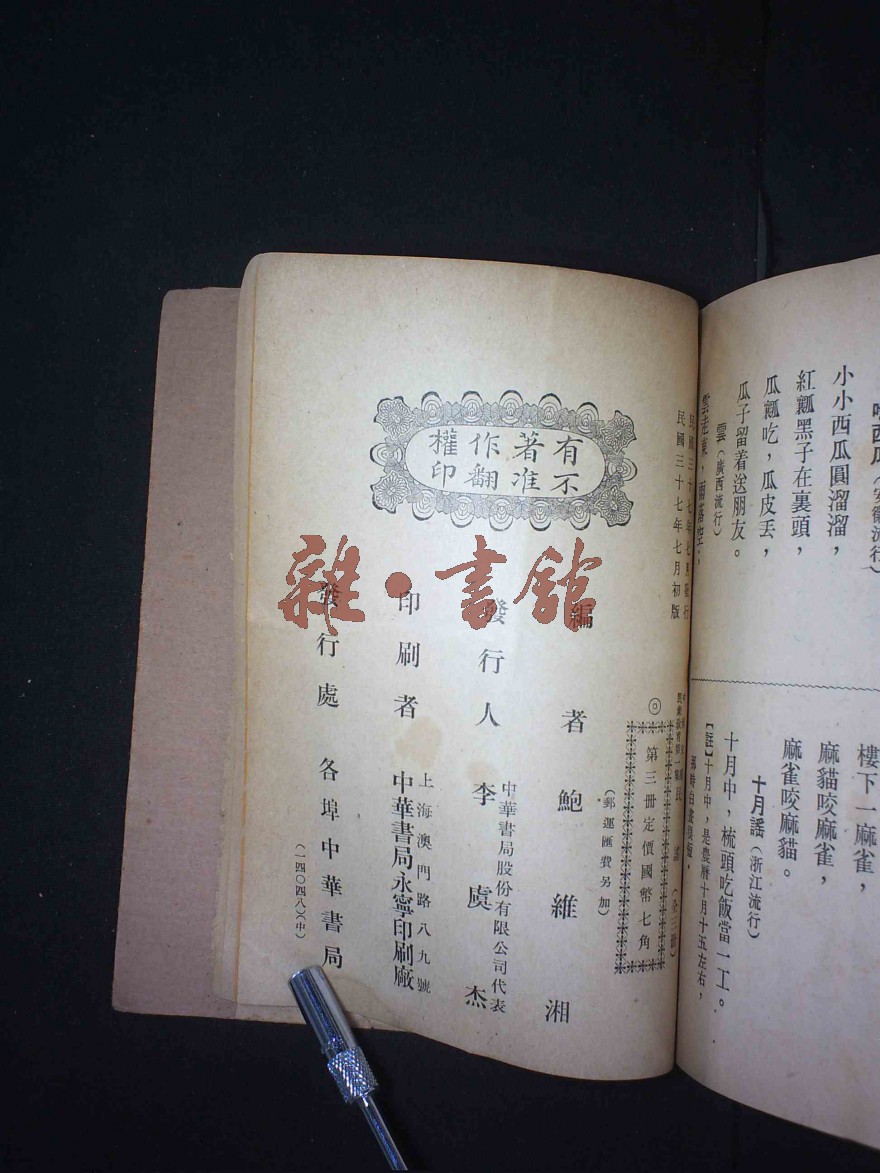 哈西瓜（安徽流行）
小小西瓜圓溜溜，
紅瓤黑子在裏頭，
瓜瓤吃，瓜皮丢，
瓜子留着送朋友。
雲（廣西流行）
雲走東，雨落空，
樓下一麻雀，
麻貓咬麻雀，
麻雀咬麻貓。
十月謠（浙江流行）
十月中，梳頭吃飯當一工。
【註】十月中，是農曆十月十五左右，
那時白晝
民國三十七年七月發行
民國三十七年七月初版
民 謠（全三冊）
◎
第三冊定價國幣七角
（郵運匯費另加）
有著作權
不准翻印
編者 鮑維湘
發行人 李虞杰
中華書局股份有限公司代表
印刷者 中華書局永寧印刷廠
上海澳門路八九號
發行處 各埠中華書局
（一四〇四八）（中）
雜·書館